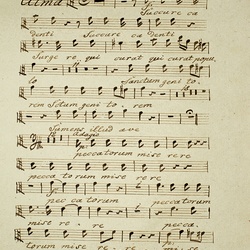 Alma
Succure ca
denti Succure ca denti
Surge re, qui curat qui curat popu
lo Sanctum geni to
rem S:tum geni to rem
Sumens illud ave
adagio
peccatorum mise rere
pecca torum mise re re
pec ca torum pec catorum
mise re re pecca
torum mise re re mise